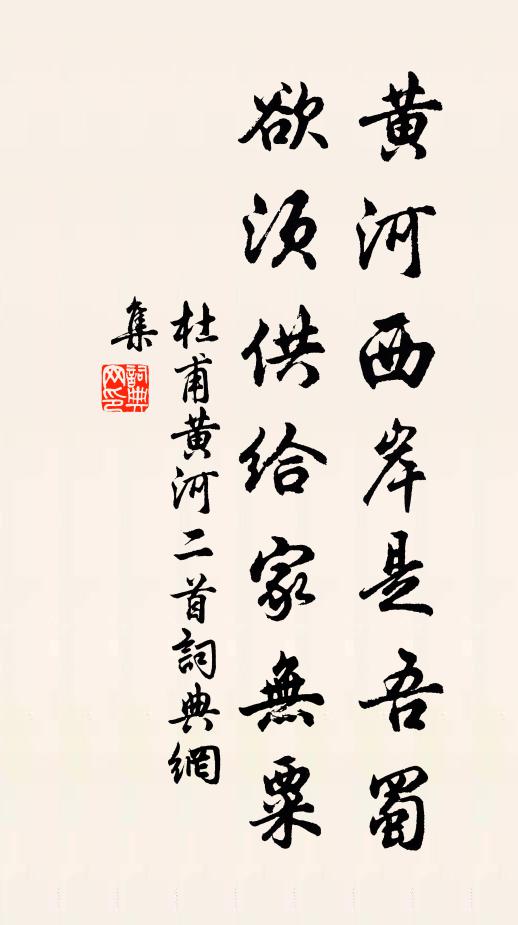 黄河西岸是吾蜀
欲须供给家無粟
杜甫黄河二首詞典網
集
詞典
网印